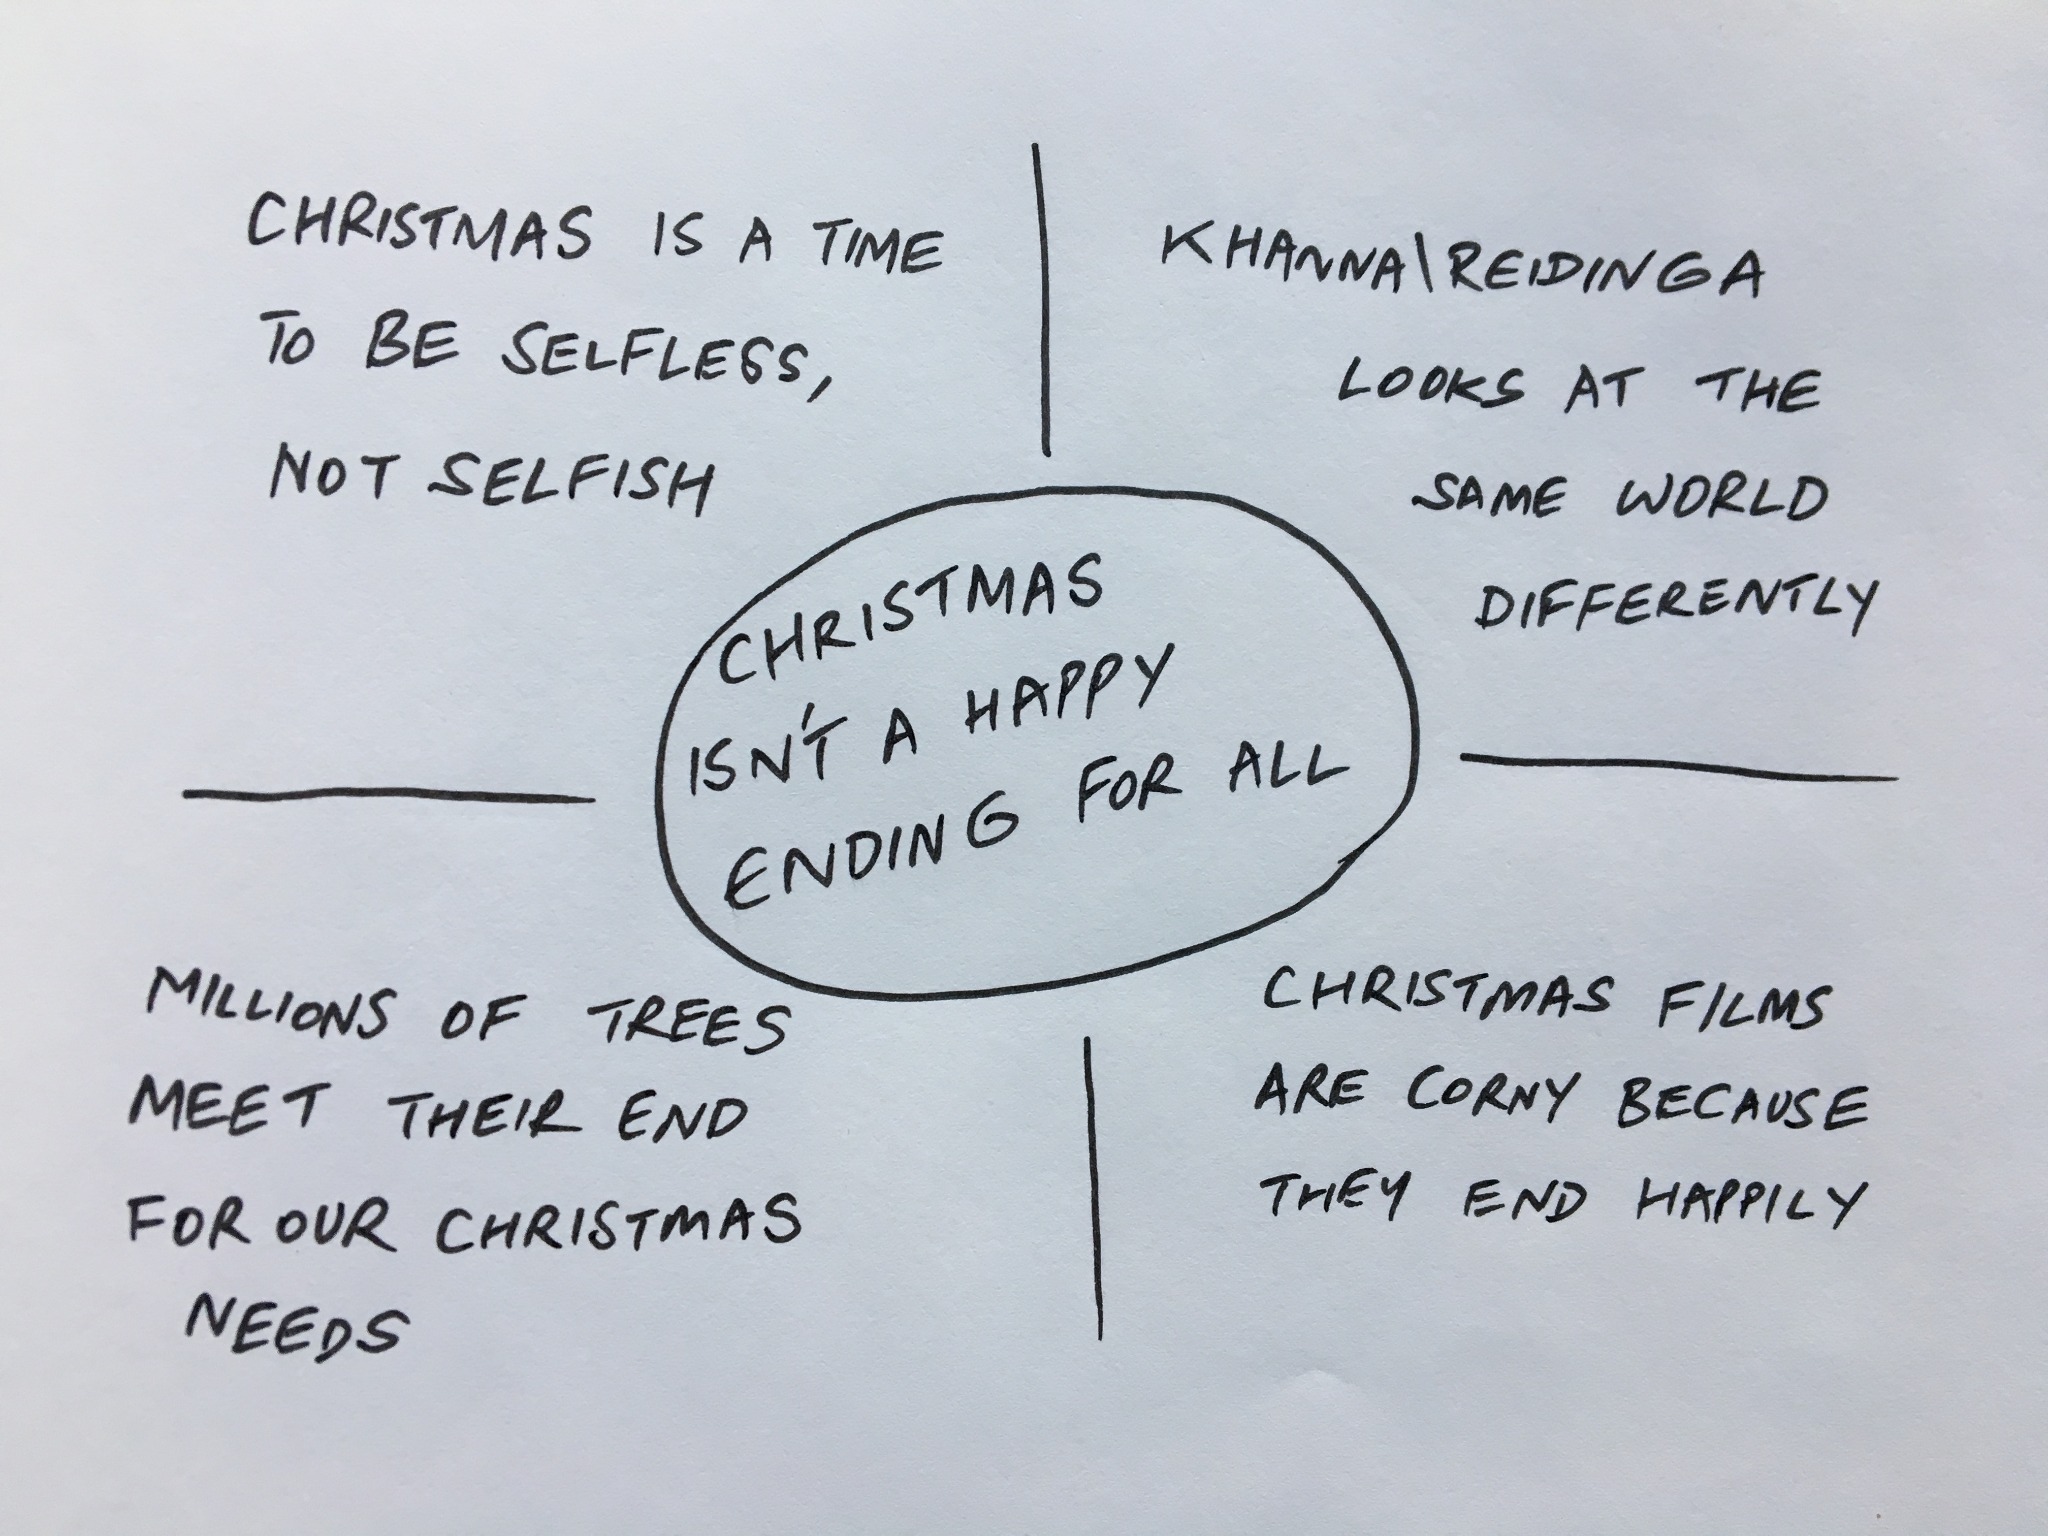 CHRISTMAS IS A TIME
TO BE SELFLESS,
NOT SELFISH
KHANNA\REIDINGA
LOOKS AT THE
SAME WORLD
DIFFERENTLY
CHRISTMAS
ISN'T A HAPPY
ENDING FOR ALL
MILLIONS OF TREES
MEET THEIR END
FOR OUR CHRISTMAS
NEEDS
CHRISTMAS FILMS
ARE CORNY BECAUSE
THEY END HAPPILY